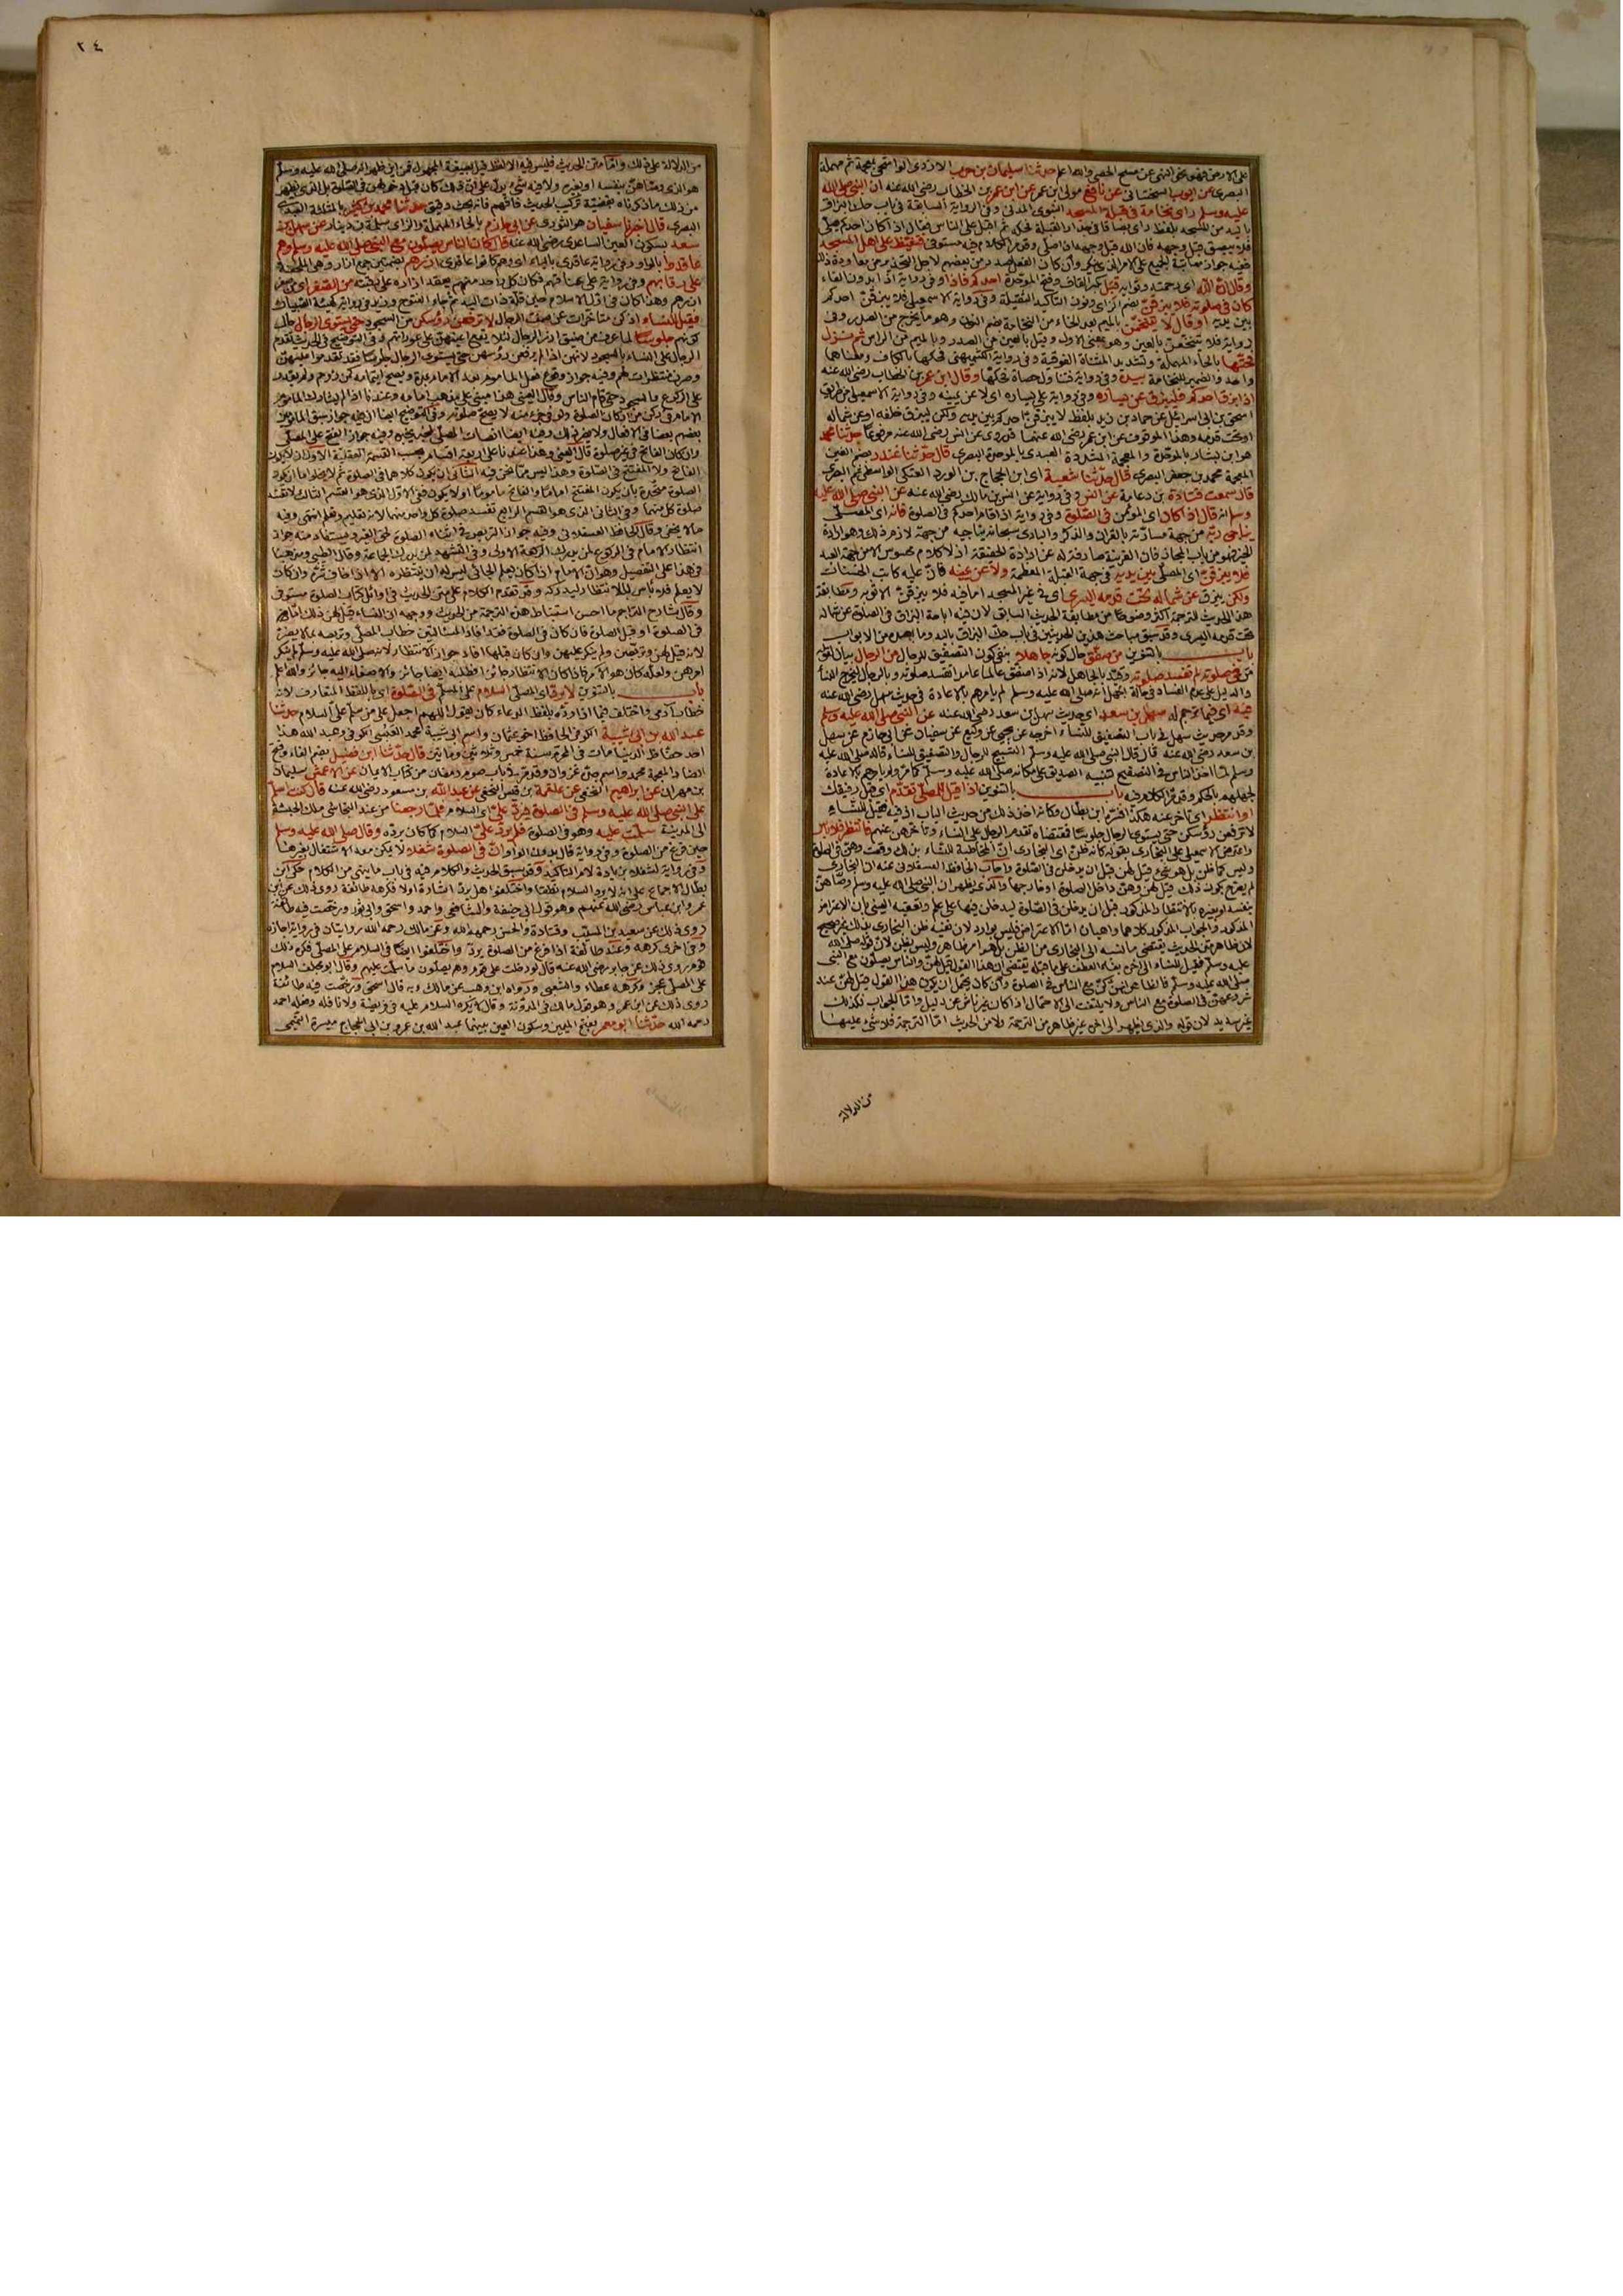 ٢٤
على الارض فهو على النهى عن مسح الحصى والله اعلم حدثنا سليمان بن حرب الازدى الواشحى بمعجمة ثم مهملة
البصرى عن ايوب السختيانى عن نافع مولى ابن عمر عن ابن عمر بن الخطاب رضى الله عنه ان النبى صلى الله
عليه وسلم راى نخامة فى قبلة المسجد النبوى المدنى وفى الرواية السابقة فى باب حك البزاق
باليد من المسجد بلفظ راى بصاقا فى جدار القبلة فحكه ثم اقبل على الناس فقال اذا كان احدكم يصلى
فلا يبصق قبل وجهه فان الله قبل وجهه اذا صلى وقد مر الكلام فيه مستوفى فتغيظ على اهل المسجد
وقال ان الله اى رحمته وثوابه قبل بكسر القاف وفتح الموحدة احدكم فاذا وفى رواية اذا بدون الفاء
كان فى صلوته فلا يبزقن بضم الزاى ونون التاكيد الثقيلة وفى رواية الاسمعيلى فلا يبزقن احدكم
بين يديه او قال لا يتنخمن بالميم بعد الخاء من النخامة بضم النون وهو ما يخرج من الصدر وفى
رواية فلا يتنخعن بالعين وهو بمعنى الاول وقيل بالعين من الصدر وبالميم من الراس ثم نزل
فحتها بالحاء المهملة وتشديد المثناة الفوقية وفى رواية الكشميهنى فحكها بالكاف ومعناهما
واحد والضمير للنخامة بيده وفى رواية فتناول حصاة فحكها وقال ابن عمر بن الخطاب رضى الله عنه
اذا بزق احدكم فليبزق عن يساره وفى رواية على يساره اى لا عن يمينه وفى رواية الاسمعيلى من طريق
اسحق بن ابى اسرائيل عن حماد بن زيد بلفظ لا يبزقن احدكم بين يديه ولكن ليبزق خلفه او عن شماله
او تحت قدمه وهذا الموقوف عن ابن عمر رضى الله عنهما قد روى عن انس رضى الله عنه مرفوعا حدثنا محمد
هو ابن بشار بالموحدة والمعجمة المشددة العبدى بالموحدة البصرى قال حدثنا غندر بضم الغين
المعجمة محمد بن جعفر البصرى قال حدثنا شعبة اى ابن الحجاج بن الورد العتكى الواسطى ثم البصرى
قال سمعت قتادة بن دعامة عن انس وفى رواية عن انس بن مالك رضى الله عنه عن النبى صلى الله عليه
وسلم انه قال اذا كان اى المؤمن فى الصلوة وفى رواية اذا قام احدكم فى الصلوة فانه اى المصلى
يناجى ربه من جهة مسارته بالقران والذكر والبارى سبحانه يناجيه من جهة لازم ذلك وهو ارادة
الخير فهو من باب المجاز فان القرينة صارفة له عن ارادة الحقيقة اذ لا كلام محسوس الا من جهة العبد
فلا يبزقن اى المصلى بين يديه فى جهة القبلة المعظمة ولا عن يمينه فان عليه كاتب الحسنات
ولكن يبزق عن شماله تحت قدمه اليسرى اى فى غير المسجد اما فيه فلا يبزقن الا فى ثوبه ومطابقة
هذا الحديث للترجمة اكثر وضوحا من مطابقة الحديث السابق لان فيه اباحة البزاق فى الصلوة عن شماله
تحت قدمه اليسرى وقد سبق مباحث هذين الحديثين فى باب حك البزاق باليد وما بعده من الابواب
باب بالتنوين من صفق حال كونه جاهلا بنفى كون التصفيق للرجال من الرجال بيان لقوله
من فى صلوته لم تفسد صلوته وقيد بالجاهل لانه اذا صفق عالما عامدا تفسد صلوته وبالرجال ليخرج النساء
والدليل على عدم الفساد فى حالة الجهل انه صلى الله عليه وسلم لم يامرهم بالاعادة فى حديث سهل رضى الله عنه
فيه اى فيما ترجم له سهل بن سعد اى حديث سهل ابن سعد رضى الله عنه عن النبى صلى الله عليه وسلم
وقد مر حديث سهل فى باب التصفيق للنساء اخرجه عن يحيى عن وكيع عن سفيان عن ابى حازم عن سهل
بن سعد رضى الله عنه قال قال النبى صلى الله عليه وسلم التسبيح للرجال والتصفيق للنساء قاله صلى الله عليه
وسلم لما اخذ الناس فى التصفيح لتنبيه الصديق على مكانه صلى الله عليه وسلم كما مر ولم يامرهم بالاعادة
لجهلهم بالحكم وقد مر الكلام فيه باب بالتنوين اذا قيل للمصلى تقدم اى قبل رفيقك
او انتظر اى تاخر عنه هكذا فسره ابن بطال وكانه اخذ ذلك من حديث الباب اذ فيه فقيل للنساء
لا ترفعن رؤسكن حتى يستوى الرجال جلوسا فمقتضاه تقدم الرجال على النساء وتاخرهن عنهم فانتظر فلا باس
واعترض الاسمعيلى على البخارى بقوله كانه ظن اى البخارى ان المخاطبة للنساء بذلك وقعت وهن فى الصلوة
وليس كما ظن بل هو شىء قيل لهن قبل ان يدخلن فى الصلوة واجاب الحافظ العسقلانى عنه ان البخارى
لم يصرح بكون ذلك قيل لهن وهن داخل الصلوة او خارجها والذى يظهر ان النبى صلى الله عليه وسلم وصاهن
بنفسه او بغيره بالانتظار المذكور قبل ان يدخلن فى الصلوة ليدخلن فيها على علم وتعقبه العينى بان الاعتراض
المذكور والجواب المذكور كلاهما واهيان اما الاعتراض فليس بوارد لان نفيه ظن البخارى بذلك غير صحيح
لان ظاهر متن الحديث يقتضى ما نسبه الى البخارى من الظن بل هو امر ظاهر وليس بظن لان قوله صلى الله
عليه وسلم فقيل للنساء الى اخره بفاء العطف على ما قبله يقتضى ان هذا القول قيل لهن والناس يصلون مع النبى
صلى الله عليه وسلم فالظاهر انهن كن مع الناس فى الصلوة وان كان يحتمل ان يكون هذا القول قيل لهن عند
شروعهن فى الصلوة مع الناس ولا يلتفت الى الاحتمال اذا كان غير ناش عن دليل واما الجواب فكذلك
غير سديد لان قوله والذى يظهر الى اخره غير ظاهر من الترجمة ولا من الحديث اما الترجمة فلا شىء عليها
من الدلالة
من الدلالة على ذلك واما متن الحديث فليس فيه الا لفظ قيل بصيغة المجهول فمن اين ظهر انه صلى الله عليه وسلم
هو الذى وصاهن بنفسه او بغيره ولا فيه شىء يدل على ان ذلك كان قبل دخولهن فى الصلوة بل الذى يظهر
من ذلك ما ذكرناه بقضية تركيب الحديث فافهم فانه بحث دقيق حدثنا محمد بن كثير بالمثلثة العبدى
البصرى قال اخبرنا سفيان هو الثورى عن ابى حازم بالحاء المهملة والزاى سلمة بن دينار عن سهل بن
سعد بسكون العين الساعدى رضى الله عنه قال كان الناس يصلون مع النبى صلى الله عليه وسلم وهم
عاقدوا بالواو وفى رواية عاقدى بالياء اى وهم كانوا عاقدى ازرهم بضمتين جمع ازار وهى الملحفة
على رقابهم وفى رواية على اعناقهم فكان كل واحد منهم يعقد ازاره على رقبته من الصغر اى من صغر
ازرهم وهذا كان فى اول الاسلام حين قلة ذات اليد ثم جاء الفتوح
فقيل للنساء اذ كن متاخرات عن صف الرجال لا ترفعن رؤسكن من السجود حتى يستوى الرجال حال
كونهم جلوسا لما عرف من ضيق ازر الرجال لئلا يقع اعينهن على عوراتهم وفى التوضيح فى الحديث تقدم
الرجال على النساء بالسجود لانهن اذا لم يرفعن رؤسهن حتى يستوى الرجال جلوسا فقد تقدموا عليهن
وصرن منتظرات لهم وفيه جواز وقوع فعل الماموم بعد الامام
على الركوع والسجود حتى قام الناس وقال العينى هذا مبنى على مذهب امامه وعندنا اذا لم يشارك الماموم
الامام فى ركن من اركان الصلوة ولو فى جزء منه لا يصح صلوته وفى التوضيح ايضا ان فيه جواز سبق المامومين
بعضهم بعضا فى الافعال ولا يضر ذلك وفيه ايضا انصات المصلى لخبر يخبره وفيه جواز الفتح على المصلى
وان كان الفاتح فى غير صلوة قال العينى وهذا عندنا على اربعة اقسام بحسب القسمة العقلية الاول ان لا يكون
الفاتح ولا المفتتح فى الصلوة وهذا ليس مما نحن فيه الثانى ان يكون كلاهما فى الصلوة ثم لا يخلو اما ان يكون
الصلوة متحدة بان يكون المفتتح اماما والفاتح ماموما اولا يكون ففى الاول الذى هو القسم الثالث لا تفسد
صلوة كل منهما وفى الثانى الذى هو القسم الرابع تفسد صلوة كل واحد منهما لانه تعليم وتعلم انتهى وفيه
ما لا يخفى وقال الحافظ العسقلانى وفيه جواز التربص فى اثناء الصلوة لحق الغير ويستفاد منه جواز
انتظار الامام فى الركوع لمن يدرك الركعة الاولى وفى التشهد لمن يدرك الجماعة وقال العينى ومذهبنا
فى هذا على التفصيل وهو ان الامام اذا كان يعلم الجائى ليس له ان ينتظره الا اذا خاف شره وان كان
لا يعلم فلا باس له بالانتظار ليدركه وقد تقدم الكلام على متن الحديث فى اوائل كتاب الصلوة مستوفى
وقال شارح التراجم ما احسن استنباط هذه الترجمة من الحديث ووجهه ان النساء قيل لهن ذلك اما
فى الصلوة او قبل الصلوة فان كان فى الصلوة فقد افاد المسئلتين خطاب المصلى وتربصه بما لا يضره
لانه قيل لهن وتربصن ولم ينكر عليهن وان كان قبلها افاد جواز الانتظار لانه صلى الله عليه وسلم لم ينكر
باب بالتنوين لا يرد اى المصلى السلام على المسلم فى الصلوة اى باللفظ المتعارف لانه
خطاب آدمى واختلف فيما اذا رده بلفظ الدعاء كان يقول اللهم اجعل على من سلم على السلام حدثنا
عبد الله بن ابى شيبة الكوفى الحافظ اخو عثمان واسم ابى شيبة محمد العبسى الكوفى وعبد الله هذا
احد حفاظ الدنيا مات فى المحرم سنة خمس وثلاثين ومائتين قال حدثنا ابن فضيل بضم الفاء وفتح
الضاد المعجمة محمد واسم جده غزوان وقد مر فى باب صوم رمضان من كتاب الايمان عن الاعمش سليمان
بن مهران عن ابراهيم النخعى عن علقمة بن قيس النخعى عن عبد الله بن مسعود رضى الله عنه قال كنت اسلم
على النبى صلى الله عليه وسلم فى الصلوة فيرد على اى السلام فلما رجعنا من عند النجاشى ملك الحبشة
الى المدينة سلمت عليه وهو فى الصلوة فلم يرد على السلام كما كان يرده وقال صلى الله عليه وسلم
حين فرغ من الصلوة وفى رواية قال بدون الواو ان فى الصلوة شغلا لا يمكن معه الاشتغال بغيرها
وفى رواية لشغلا بزيادة لام التاكيد وقد سبق الحديث والكلام فيه فى باب ما ينهى من الكلام حكى ابن
بطال الاجماع على انه لا يرد السلام نطقا واختلفوا هل يرد اشارة او لا فكرهه طائفة روى ذلك عن ابن
عمر وابن عباس رضى الله عنهم وهو قول ابى حنيفة والشافعى واحمد واسحق وابى ثور ورخصت فيه طائفة
روى ذلك عن سعيد بن المسيب وقتادة والحسن رحمهم الله وعن مالك رحمه الله روايتان فى رواية اجازه
وفى اخرى كرهه وعند طائفة اذا فرغ من الصلوة يرد واختلفوا ايضا فى السلام على المصلى فكره ذلك
قوم وروى ذلك عن جابر رضى الله عنه قال لو دخلت على قوم وهم يصلون ما سلمت عليهم وقال ابو مجلز السلام
على المصلى عجز وكرهه عطاء والشعبى ورواه ابن وهب عن مالك وبه قال اسحق ورخصت فيه طائفة
روى ذلك عن ابن عمر وهو قول مالك فى المدونة وقال لا يكره السلام عليه فى فريضة ولا نافلة وفعله احمد
رحمه الله حدثنا ابو معمر بفتح الميمين وسكون العين بينهما عبد الله بن عمرو بن ابى الحجاج ميسرة التميمى